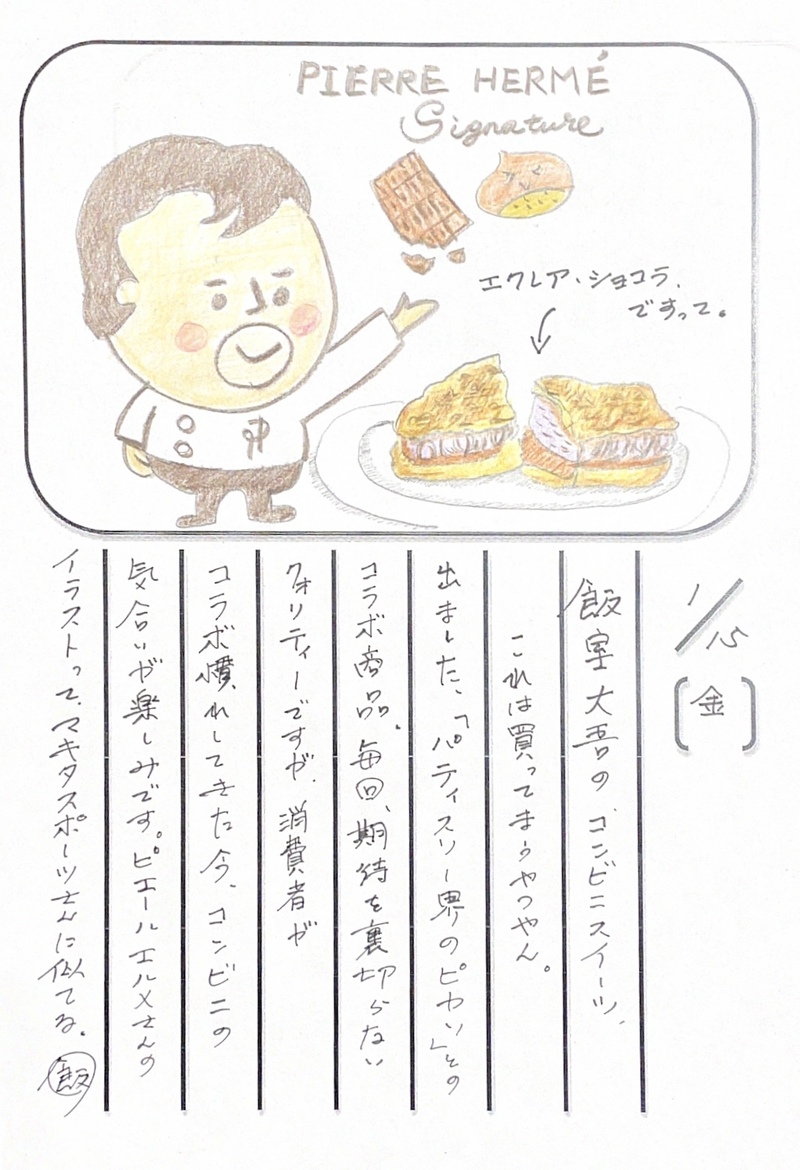 PIERRE HERMÉ
Signature
エクレア・ショコラ、
ですって。
1/15
(金)
飯室大吾のコンビニスイーツ、
これは買ってまうやつやん。
出ました、「パティスリー界のピカソ」との
コラボ商品。毎回、期待を裏切らない
クォリティーですが、消費者が
コラボ慣れしてきた今、コンビニの
気合いが楽しみです。ピエールエルメさんの
イラストって、マキタスポーツさんに似てる。
飯